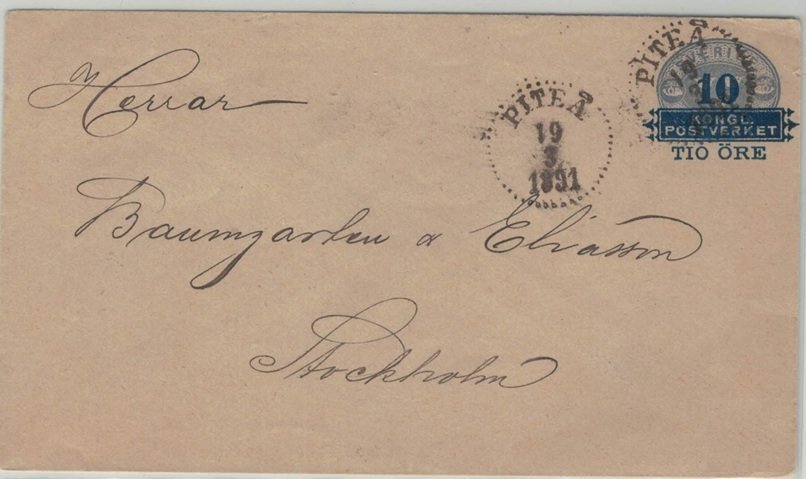 Herrar
Baumgarten & Eliasson
Stockholm
PITEÅ
19
3
1891
PITEÅ
19
3
10
KONGL.
POSTVERKET
TIO ÖRE